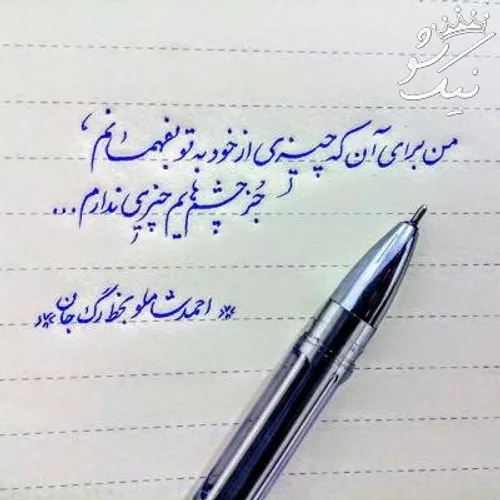 نیک شو
من برای آن که چیزی از خود به تو بفهمانم،
جُز چشم‌هایم چیزی ندارم...
احمد شاملو بخط رگ جان